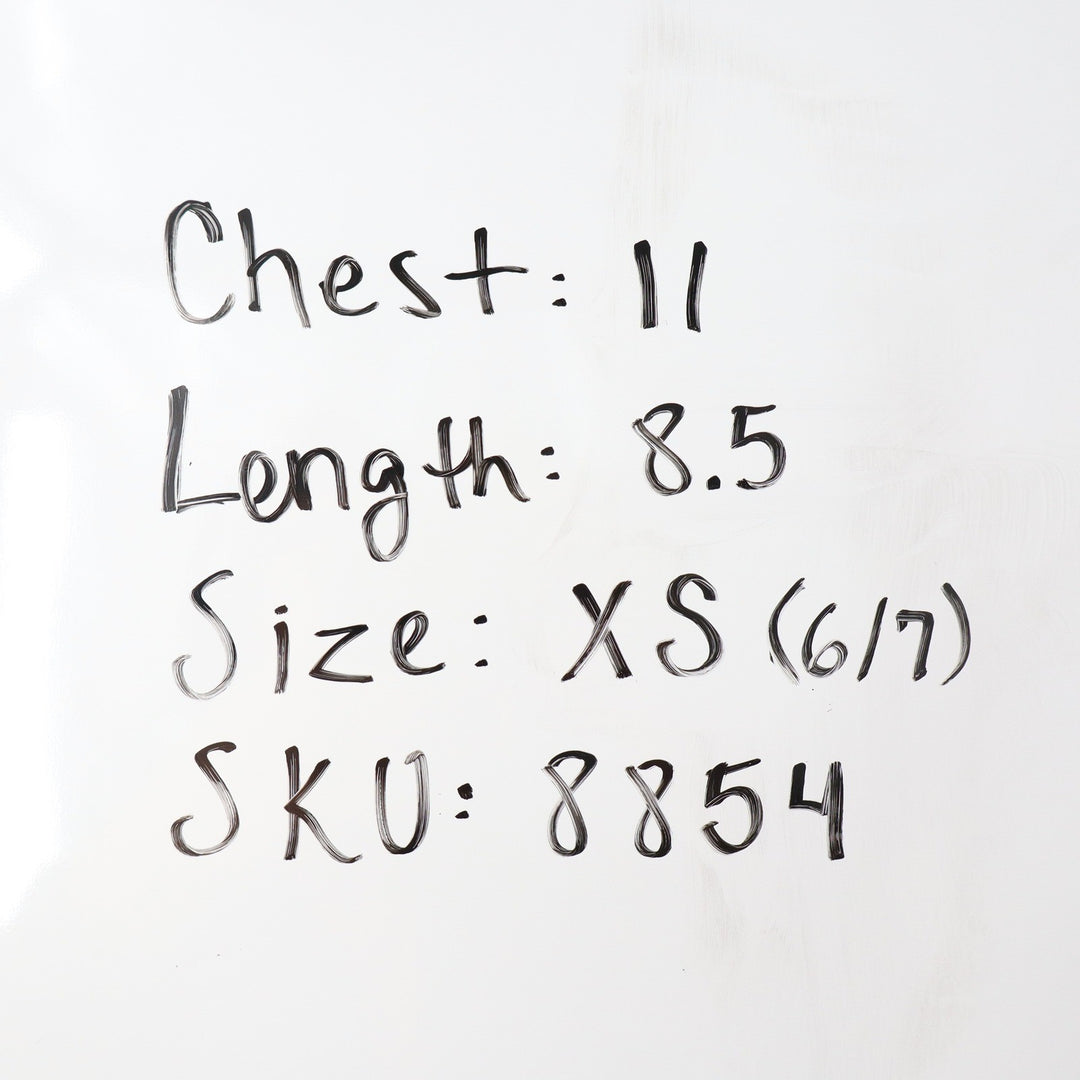 Chest: 11
Length: 8.5
Size: XS (6/7)
SKU: 8854